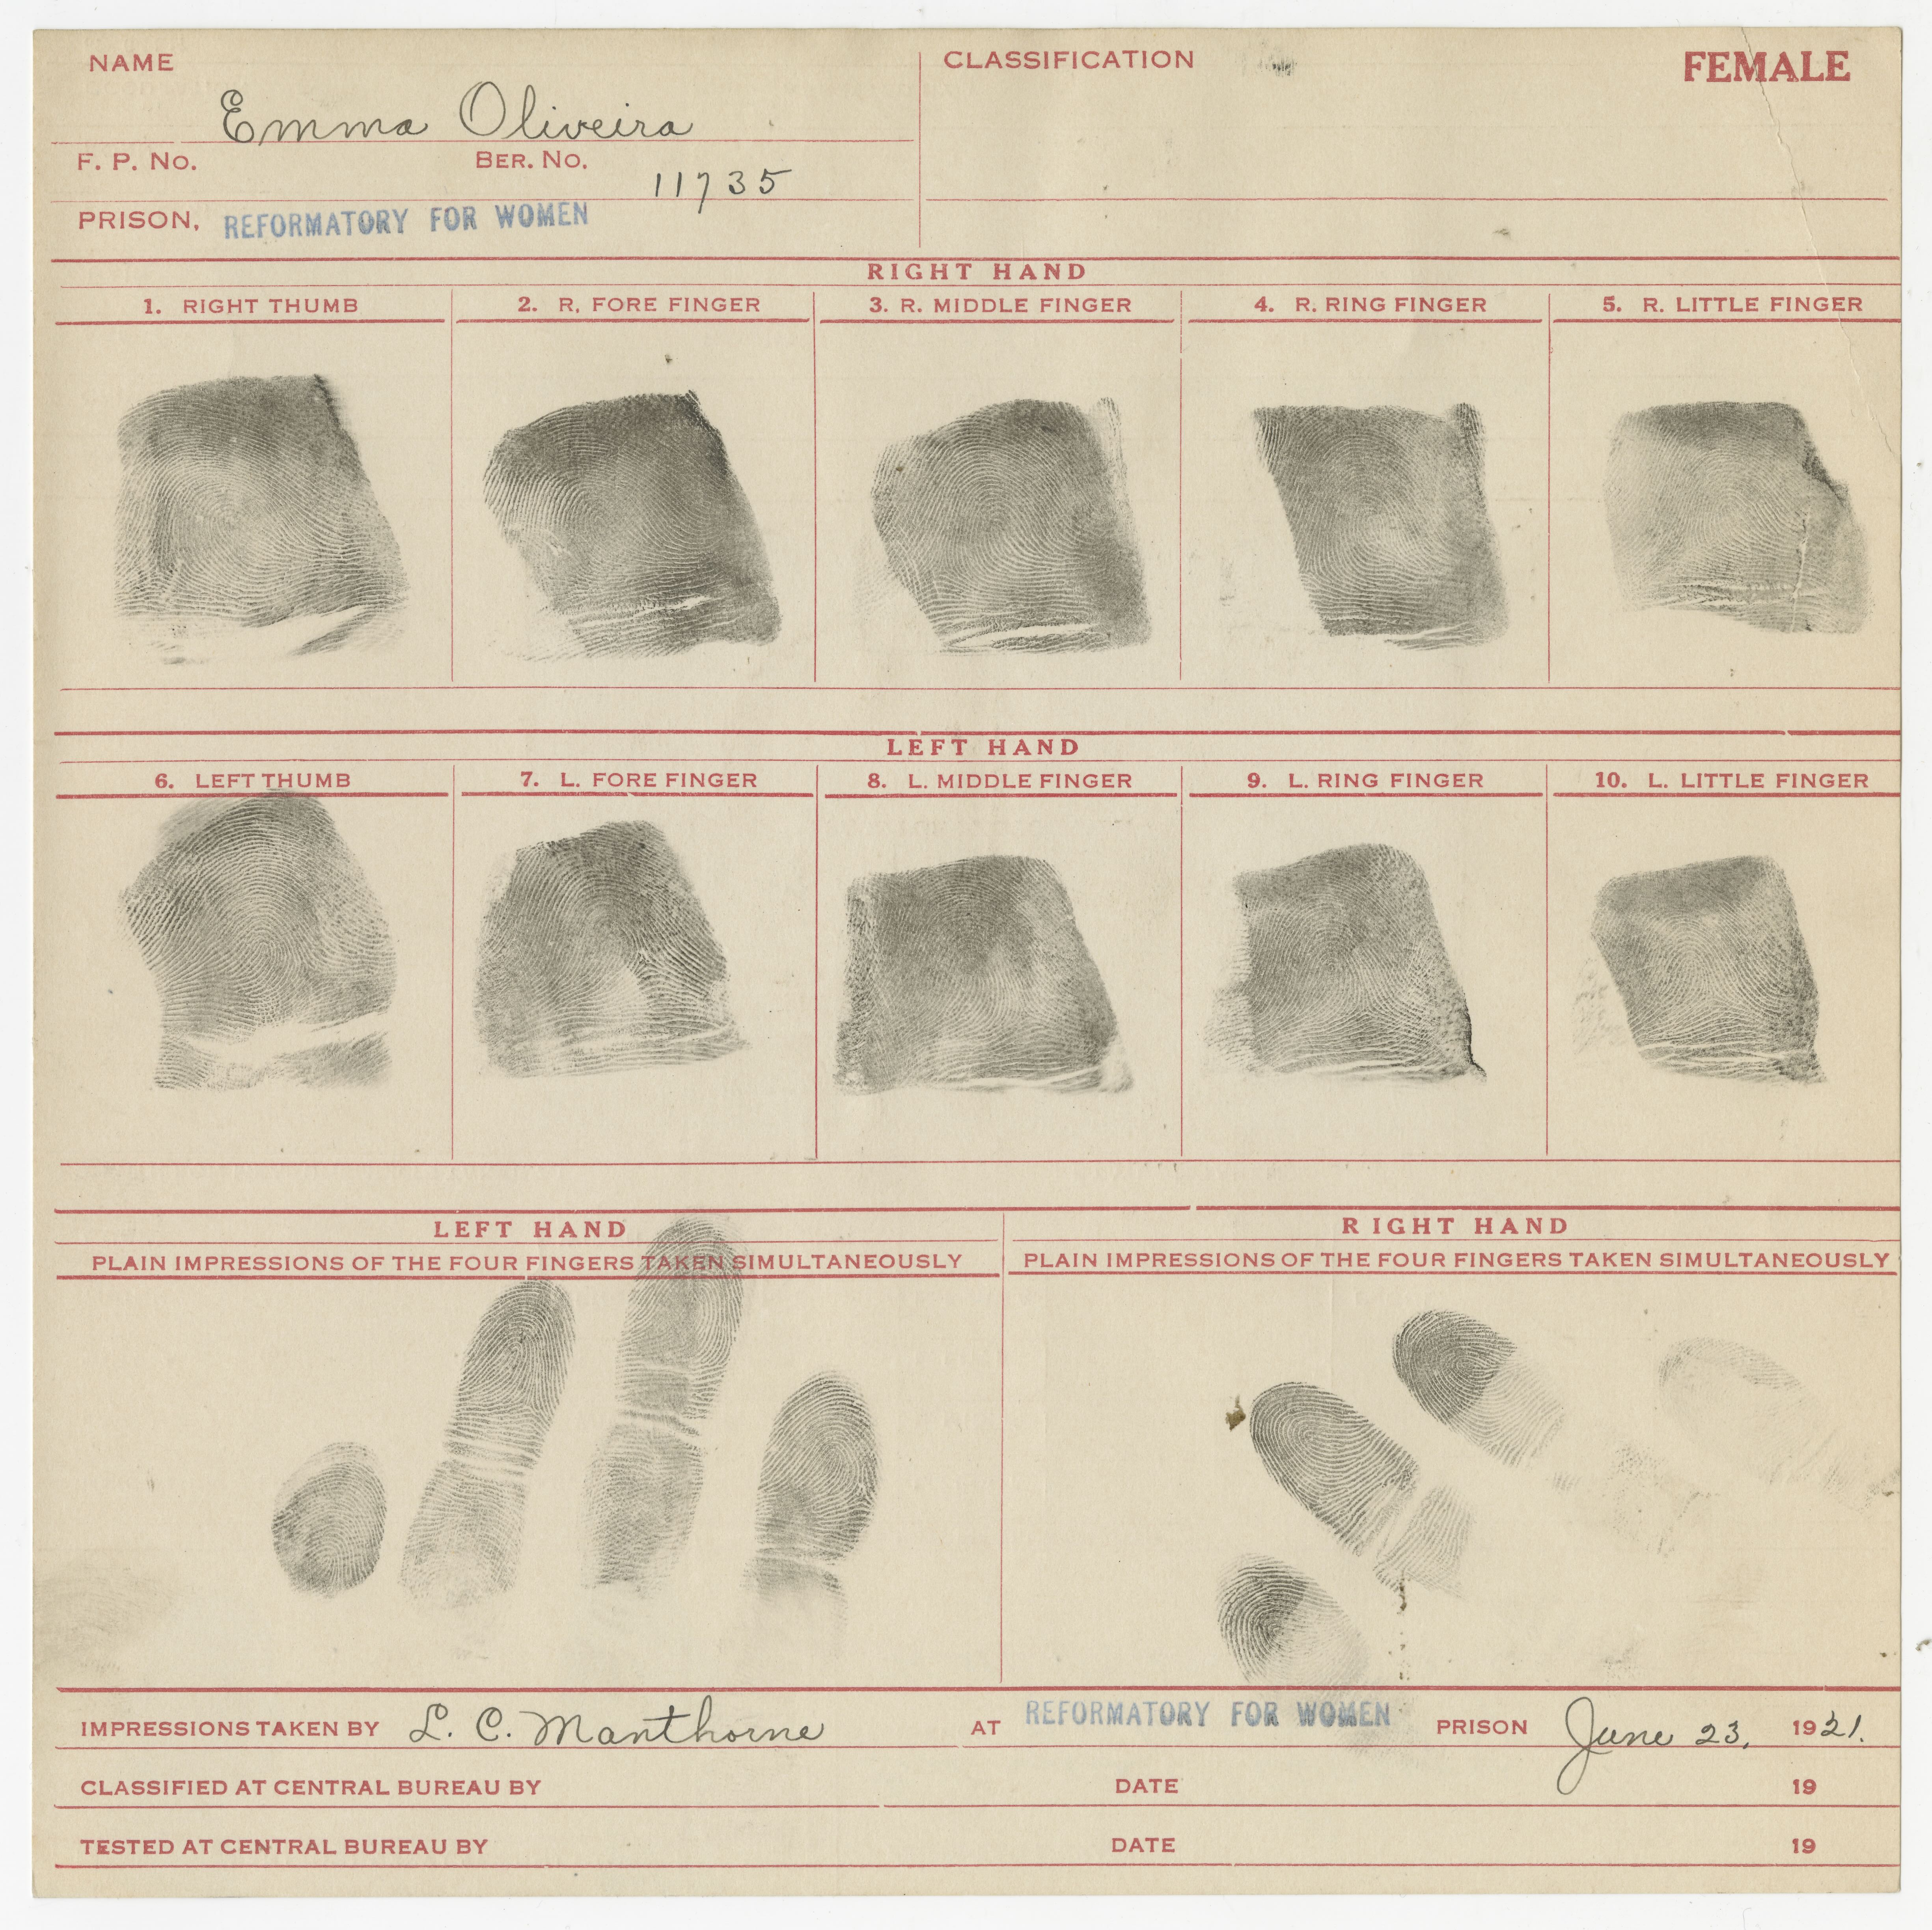 NAME Emma Oliveira
CLASSIFICATION
FEMALE
F. P. No. BER. No. 11735
PRISON, REFORMATORY FOR WOMEN
RIGHT HAND
1. RIGHT THUMB 2. R, FORE FINGER 3. R. MIDDLE FINGER 4. R. RING FINGER 5. R. LITTLE FINGER
LEFT HAND
6. LEFT THUMB 7. L. FORE FINGER 8. L. MIDDLE FINGER 9. L. RING FINGER 10. L. LITTLE FINGER
LEFT HAND
PLAIN IMPRESSIONS OF THE FOUR FINGERS TAKEN SIMULTANEOUSLY
RIGHT HAND
PLAIN IMPRESSIONS OF THE FOUR FINGERS TAKEN SIMULTANEOUSLY
IMPRESSIONS TAKEN BY L. C. Manthorne AT REFORMATORY FOR WOMEN PRISON June 23, 1921.
CLASSIFIED AT CENTRAL BUREAU BY DATE 19
TESTED AT CENTRAL BUREAU BY DATE 19